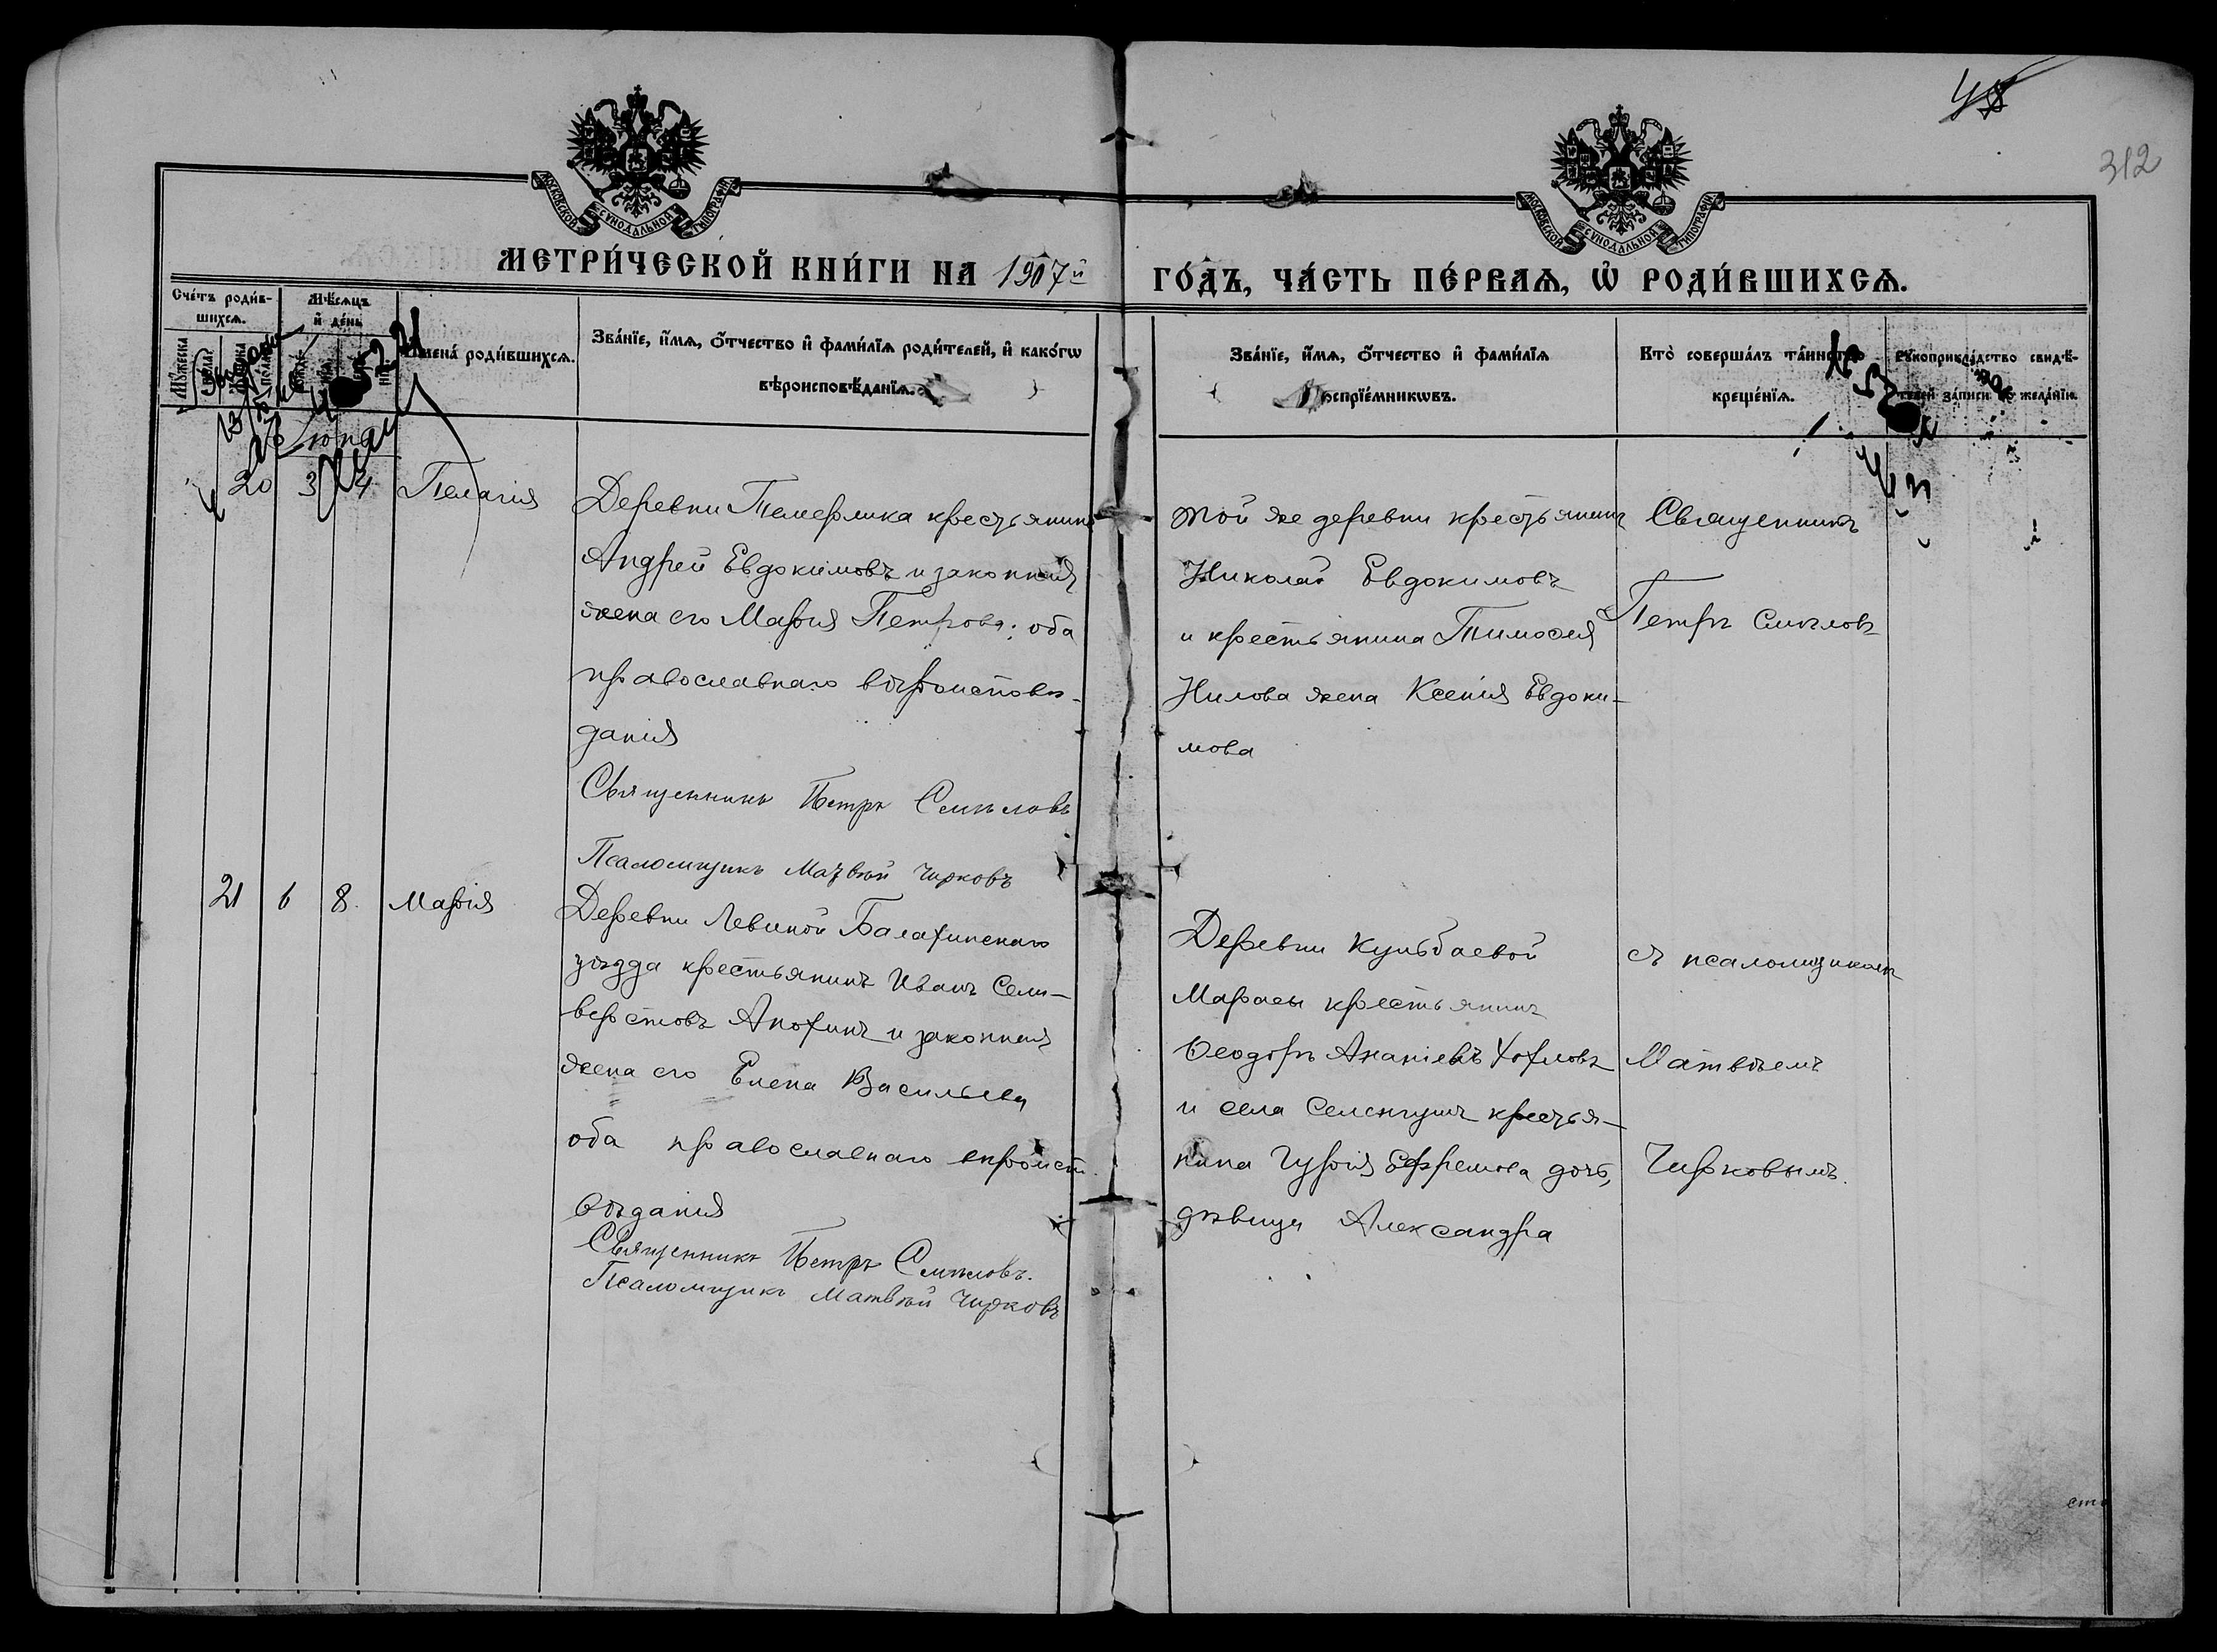 48
312
МОСКОВСКОЙ СѴНОДАЛЬНОЙ ТИПОГРАФІИ
МОСКОВСКОЙ СѴНОДАЛЬНОЙ ТИПОГРАФІИ
МЕТРИ́ЧЕСКОЙ КНИ́ГИ НА 1907й
ГО́ДЪ, ЧА́СТЬ ПЕ́РВАѦ, Ѡ҆ РОДИ́ВШИХСѦ.
Сче́тъ роди́в-
шихсѧ.
Мѣ́сѧцъ
и҆ де́нь
Имена́ роди́вшихсѧ.
Зва́нїе, и҆́мѧ, ѻ҆́тчество и҆ фами́лїѧ роди́телей, и҆ како́гѡ
вѣроисповѣ́данїѧ.
Зва́нїе, и҆́мѧ, ѻ҆́тчество и҆ фами́лїѧ
воспрїе́мникѡвъ.
Кто̀ соверша́лъ та́инство
креще́нїѧ.
Рѹкоприкла́дство свидѣ́-
телей за́писи по жела́нїю.
20 3 4 Пелагия
Деревни Темерлика крестьянинъ
Андрей Евдокимовъ и законная
жена его Мария Петрова; оба
православнаго вѣроисповѣ-
дания
Священникъ Петръ Смѣловъ
Псаломщикъ Матвѣй Чирковъ
той же деревни крестьянинъ
Николай Евдокимовъ
и крестьянина Тимофея
Нилова жена Ксения Евдоки-
мова
Священникъ
Петръ Смѣловъ
21 6 8. Мария
Деревни Левиной
уѣзда крестьянинъ Иванъ Сели-
верстовъ и законная
жена его Елена Васильева
оба православнаго вѣроиспо-
вѣдания
Священникъ Петръ Смѣловъ.
Псаломщикъ Матвѣй Чирковъ
Деревни Кульбаевой
Марасы крестьянинъ
Ѳеодоръ Ананіевъ
и села Селенгушъ крестья-
нина Гурия Ефремова дочь,
дѣвица Александра
съ псаломщикомъ
Матвѣемъ
Чирковымъ.